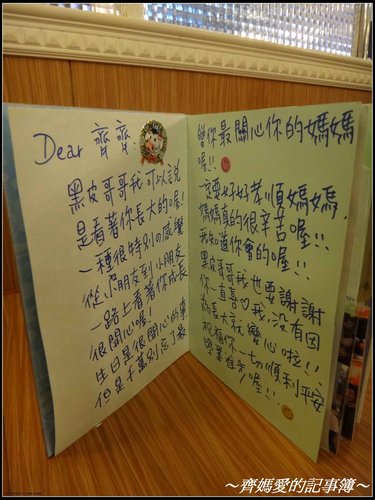 Dear 齊齊:
黑皮哥哥我可以說
是看著你長大的喔!
一種很特別的感覺
從小朋友到小朋友
一路上看著你成長
很開心喔!
生日是很開心的事
但是千萬別忘了最
愛你最關心你的媽媽
喔!!
一定要好好孝順媽媽,
媽媽真的很辛苦喔!!
我知道你會的喔!!
黑皮哥哥我也要謝謝
你一直喜♡我,沒有因
為長大就變心啦!!
祝福你一切順利平安
學業進步喔!!
～齊媽愛的記事簿～